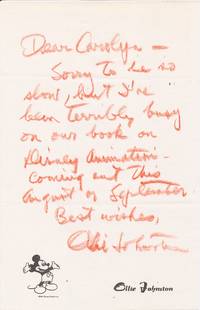 Dear Carolyn —
Sorry to be so
slow, but I've
been terribly busy
on our book on
Disney Animation -
coming out this
August or September
Best wishes,
Ollie Johnston
Ollie Johnston